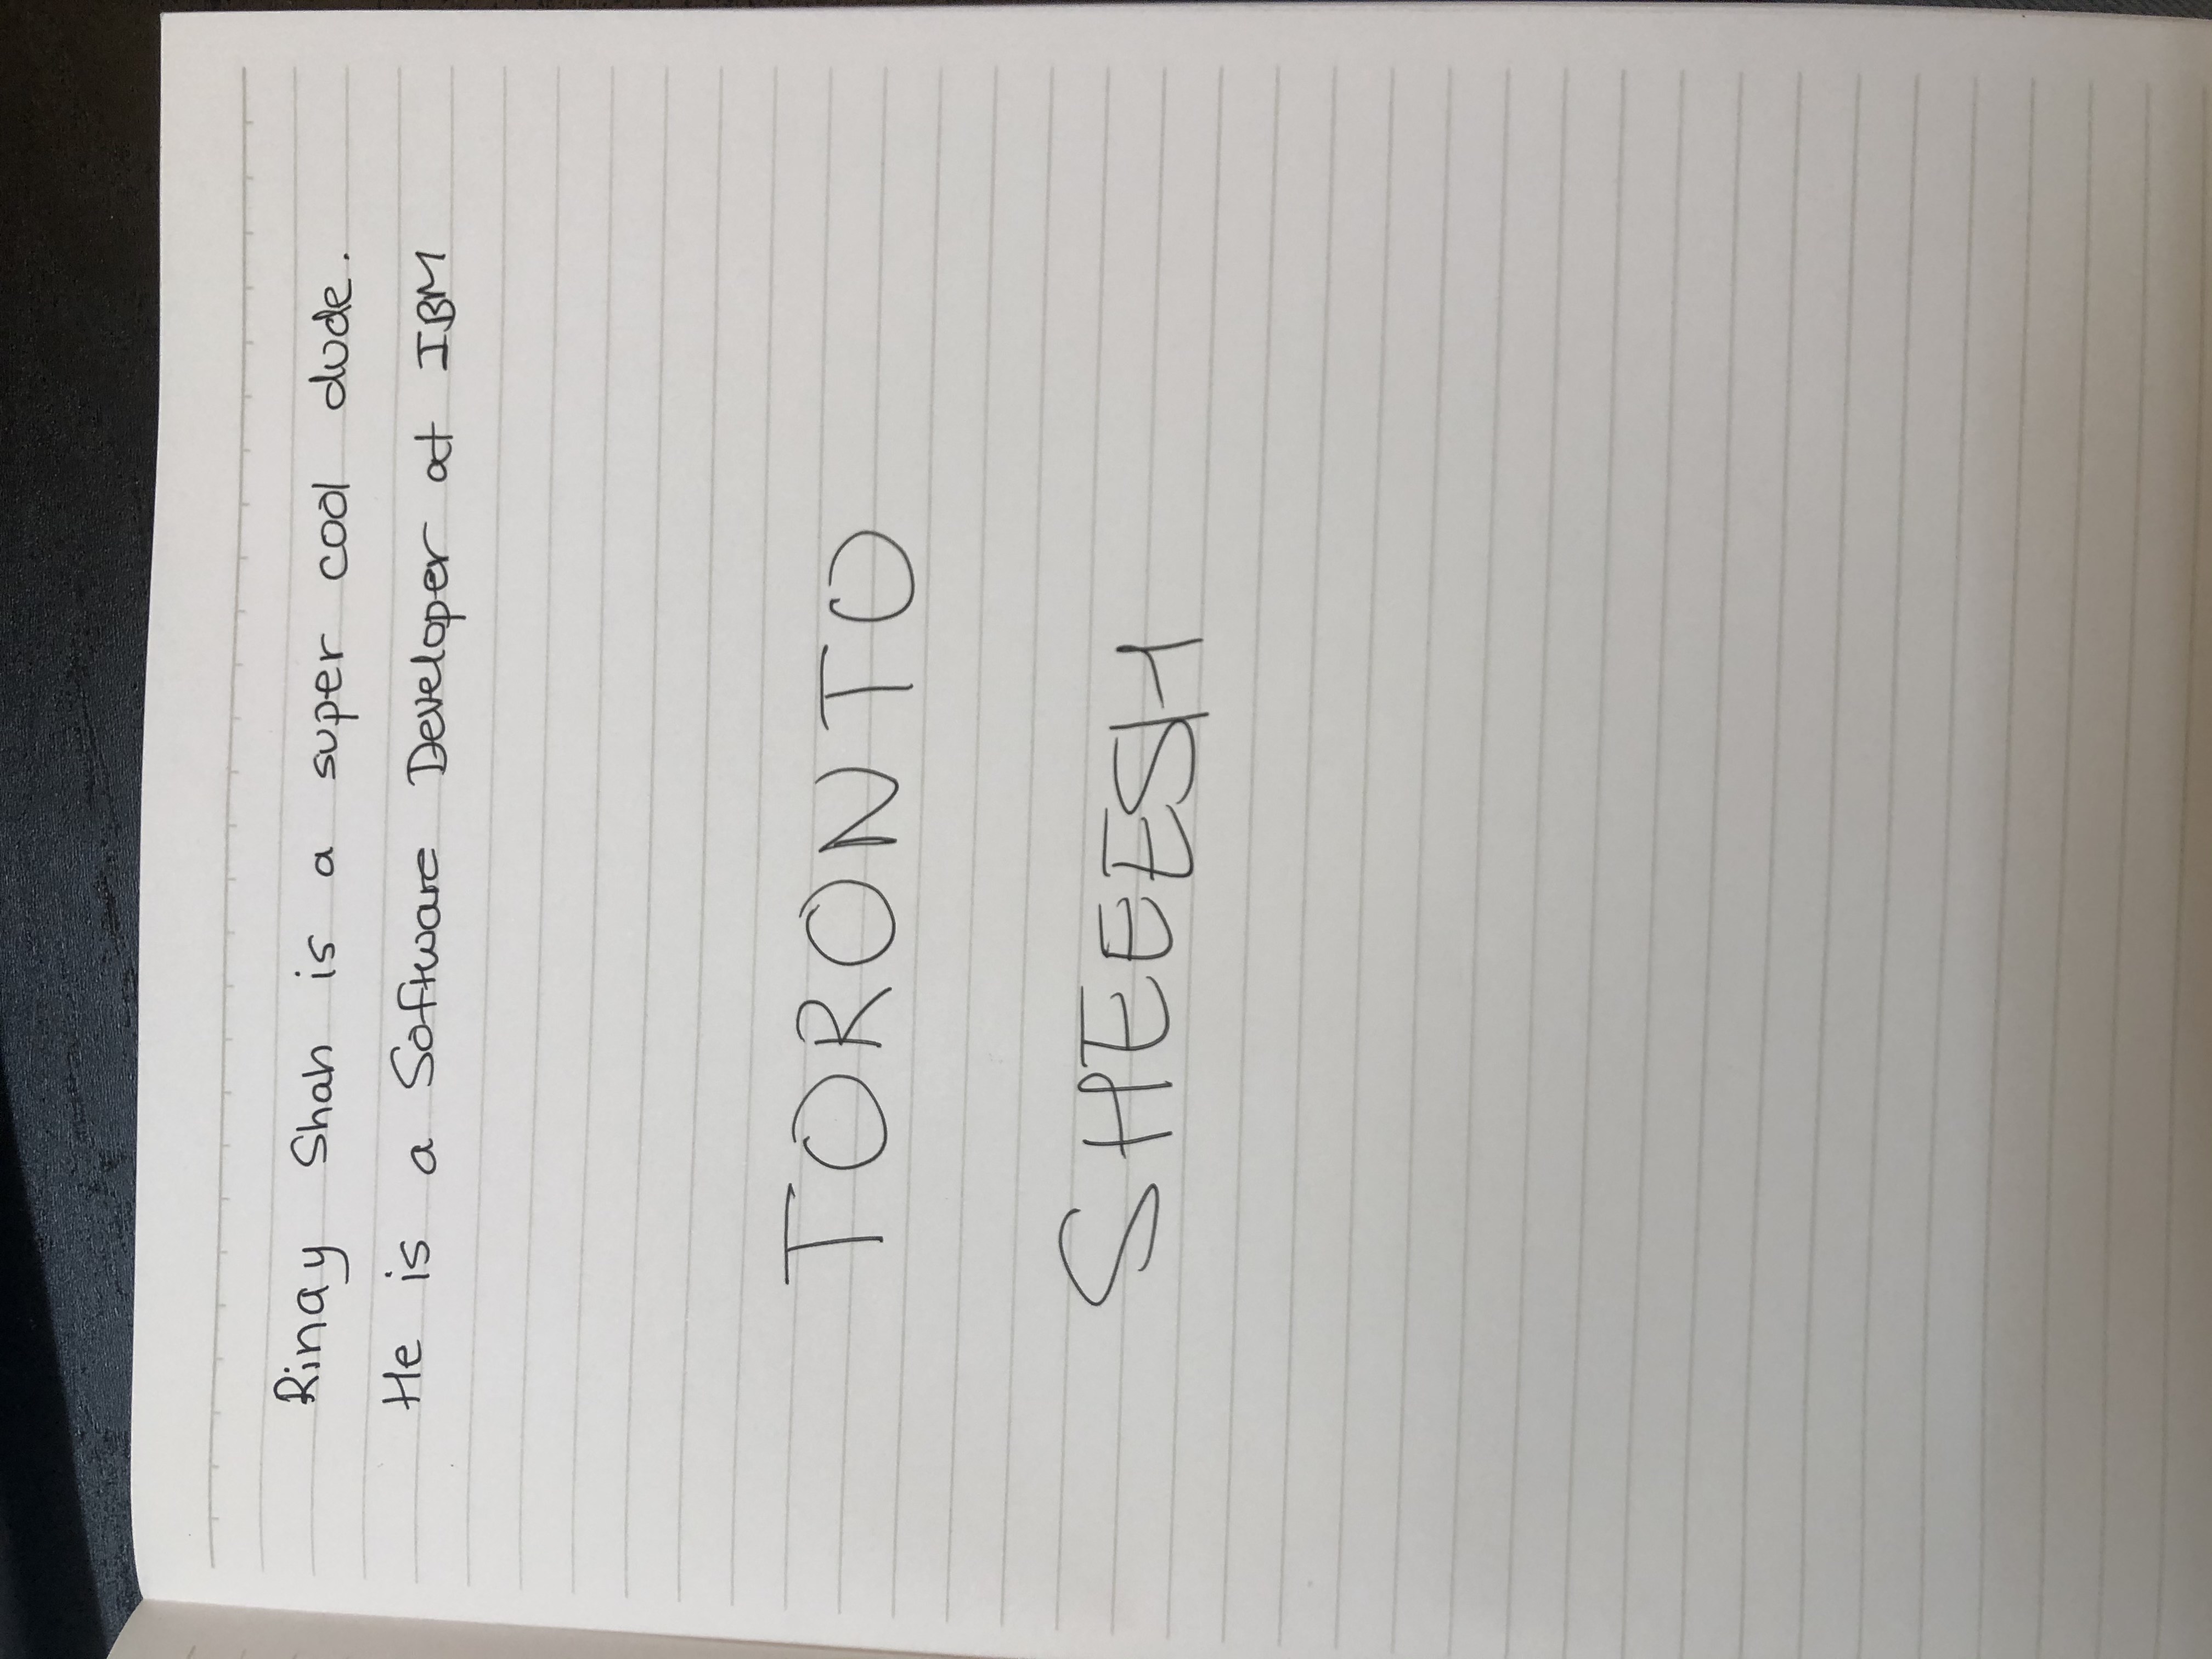 Rinay Shah is a super cool dude.
He is a Software Developer at IBM
TORONTO
SHEEESH